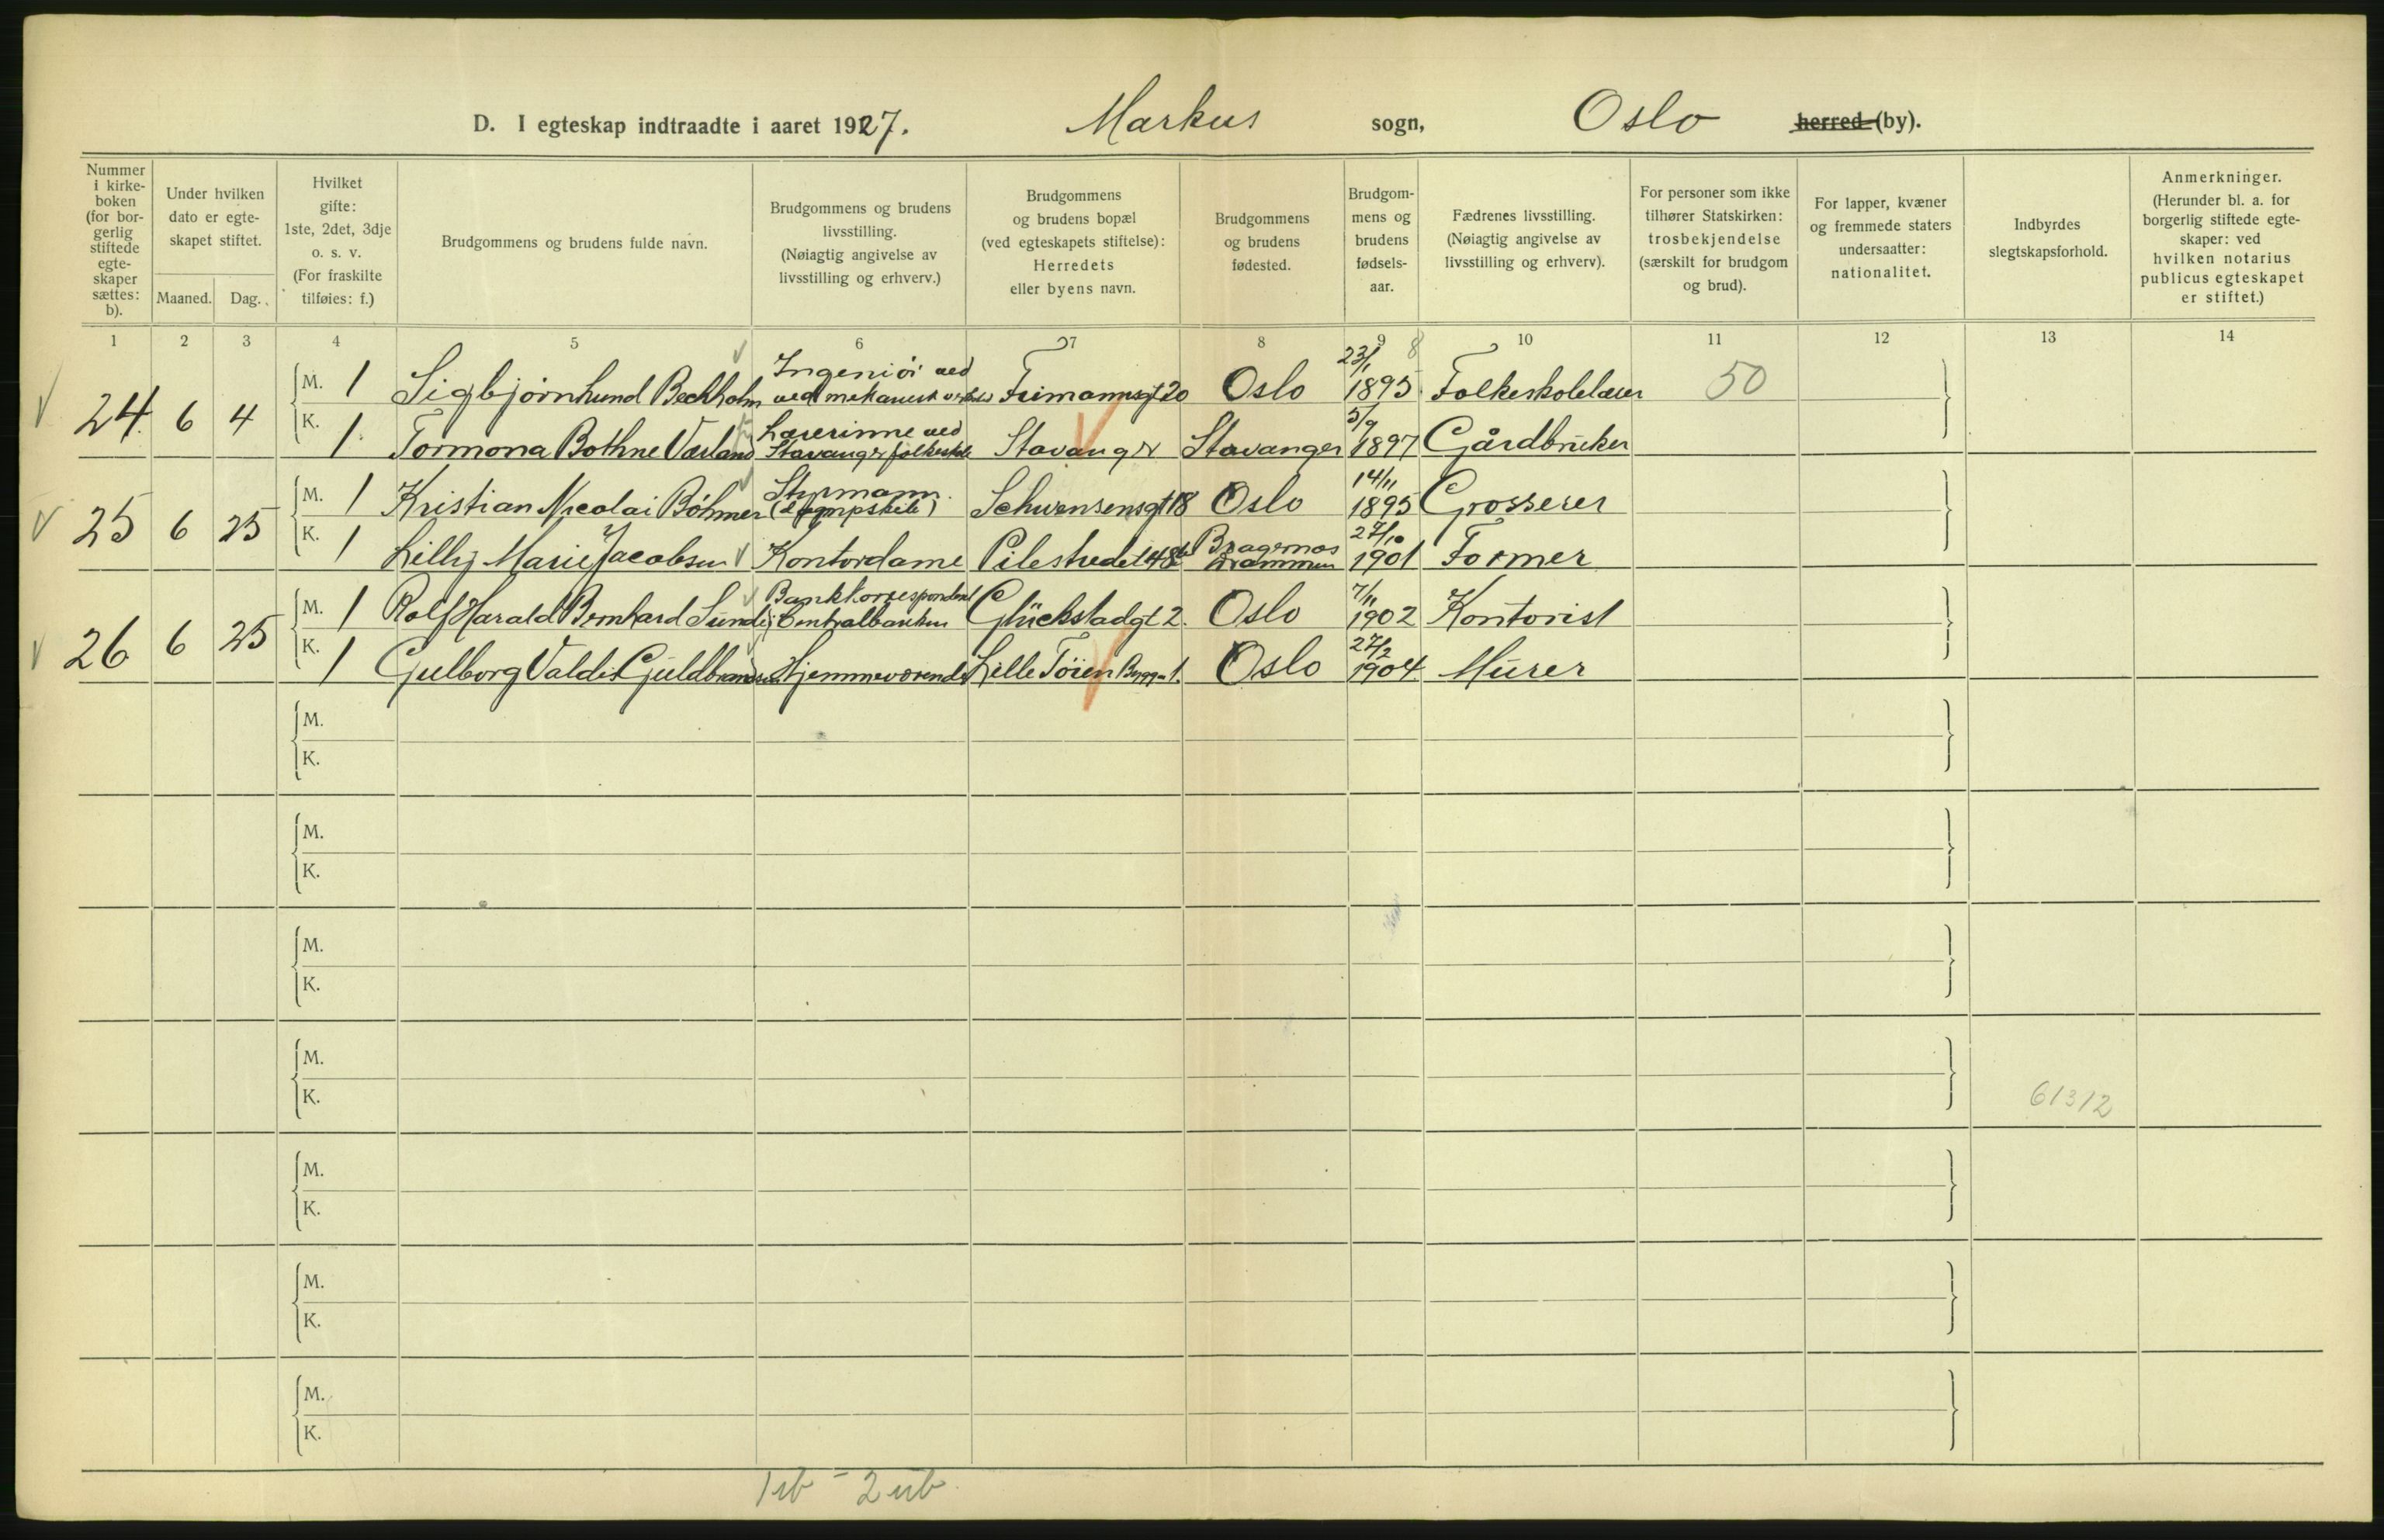 D. I egteskap indtraadte i aaret 1927. Markus sogn, Oslo herred (by).
Nummer i kirkeboken (for borgerlig stiftede egteskaper sættes: b).
Under hvilken dato er egteskapet stiftet.
Maaned. Dag.
Hvilket gifte: 1ste, 2det, 3dje o. s. v. (For fraskilte tilføies: f.)
Brudgommens og brudens fulde navn.
Brudgommens og brudens livsstilling. (Nøiagtig angivelse av livsstilling og erhverv.)
Brudgommens og brudens bopæl (ved egteskapets stiftelse): Herredets eller byens navn.
Brudgommens og brudens fødested.
Brudgommens og brudens fødselsaar.
Fædrenes livsstilling. (Nøiagtig angivelse av livsstilling og erhverv).
For personer som ikke tilhører Statskirken: trosbekjendelse (særskilt for brudgom og brud).
For lapper, kvæner og fremmede staters undersaatter: nationalitet.
Indbyrdes slegtskapsforhold.
Anmerkninger. (Herunder bl. a. for borgerlig stiftede egteskaper: ved hvilken notarius publicus egteskapet er stiftet.)
1 2 3 4 5 6 7 8 9 10 11 12 13 14
24 6 4 M. 1 Sigbjørn Lund Bechholm Ingeniør ved mekanisk Oslo 23/1 1895 Folkeskolelærer 50
K. 1 Tormona Bothne Varland Lærerinne ved Stavanger folkeskole Stavanger Stavanger 5/9 1897 Gårdbruker
25 6 25 M. 1 Kristian Nicolai Böhmer Styrmann (dampskib) Schwensensgt 18 Oslo 14/11 1895 Grosserer
K. 1 Lilly Marie Jacobsen Kontordame Pilestredet 48 Bragernes Drammen 27/10 1901 Former
26 6 25 M. 1 Rolf Harald Bernhard Sundij Bankkorrespondent Centralbanken Glückstadgt 2. Oslo 7/11 1902 Kontorist
K. 1 Gulborg Valdis Guldbrandsen Hjemmeværende Lille Tøien 1. Oslo 27/2 1904 Murer
M.
K.
M.
K.
M.
K.
M.
K.
61312
M.
K.
M.
K.
M.
K.
1 ub - 2 ub